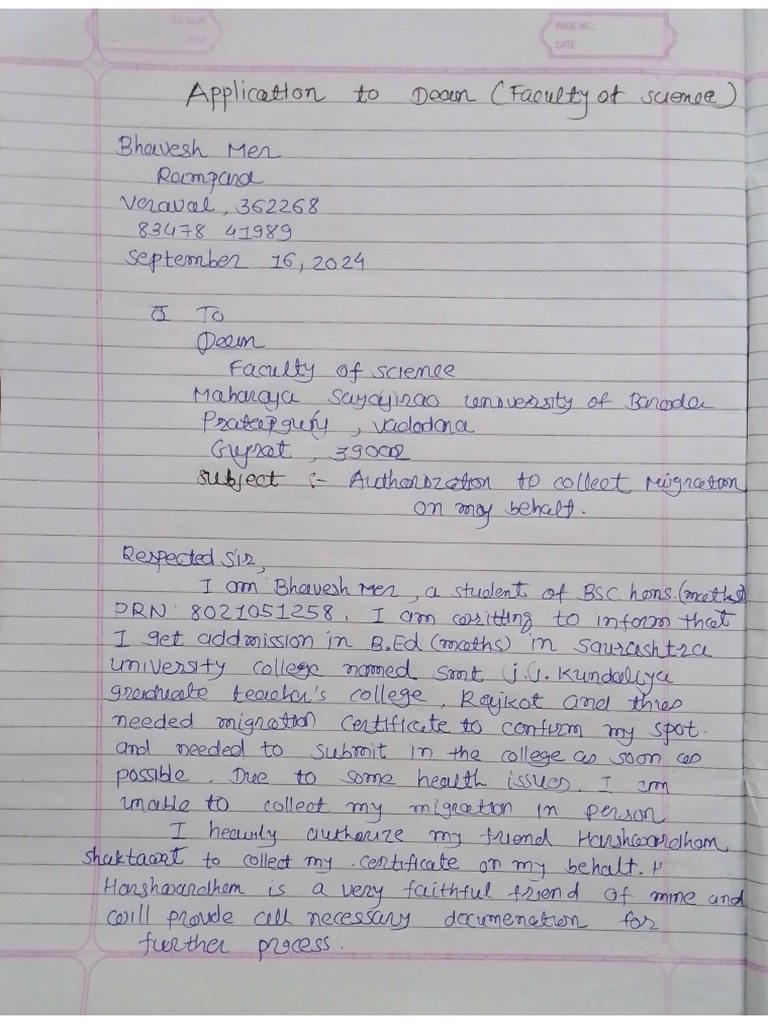 PAGE NO.:
DATE
Application to Dean (Faculty of science)
Bhavesh Mer
Rampara
Veraval, 362268
83478 41989
September 16, 2024
To
Dean
Faculty of science
Maharaja Sayajirao university of Baroda
Pratapgunj, Vadodara
Gujrat, 39002
Subject :- Authorization to collect Migration
on may behalf.
Respected Sir,
I am Bhavesh Mer, a student of BSC hons. (maths)
PRN: 8021051258. I am writting to inform that
I get addmission in B.Ed (maths) in Saurashtra
university college named smt J.J. Kundaliya
graduate teacher's college, Rajkot and
needed migration certificate to confirm my spot.
and needed to submit in the college as soon as
possible. Due to some health issues. I am
unable to collect my migration in person
I heavily authorize my friend Harshwardham
shaktawat to collect my certificate on my behalf.
Harshwardham is a very faithful friend of mine and
will provide all necessary documenation for
further process.